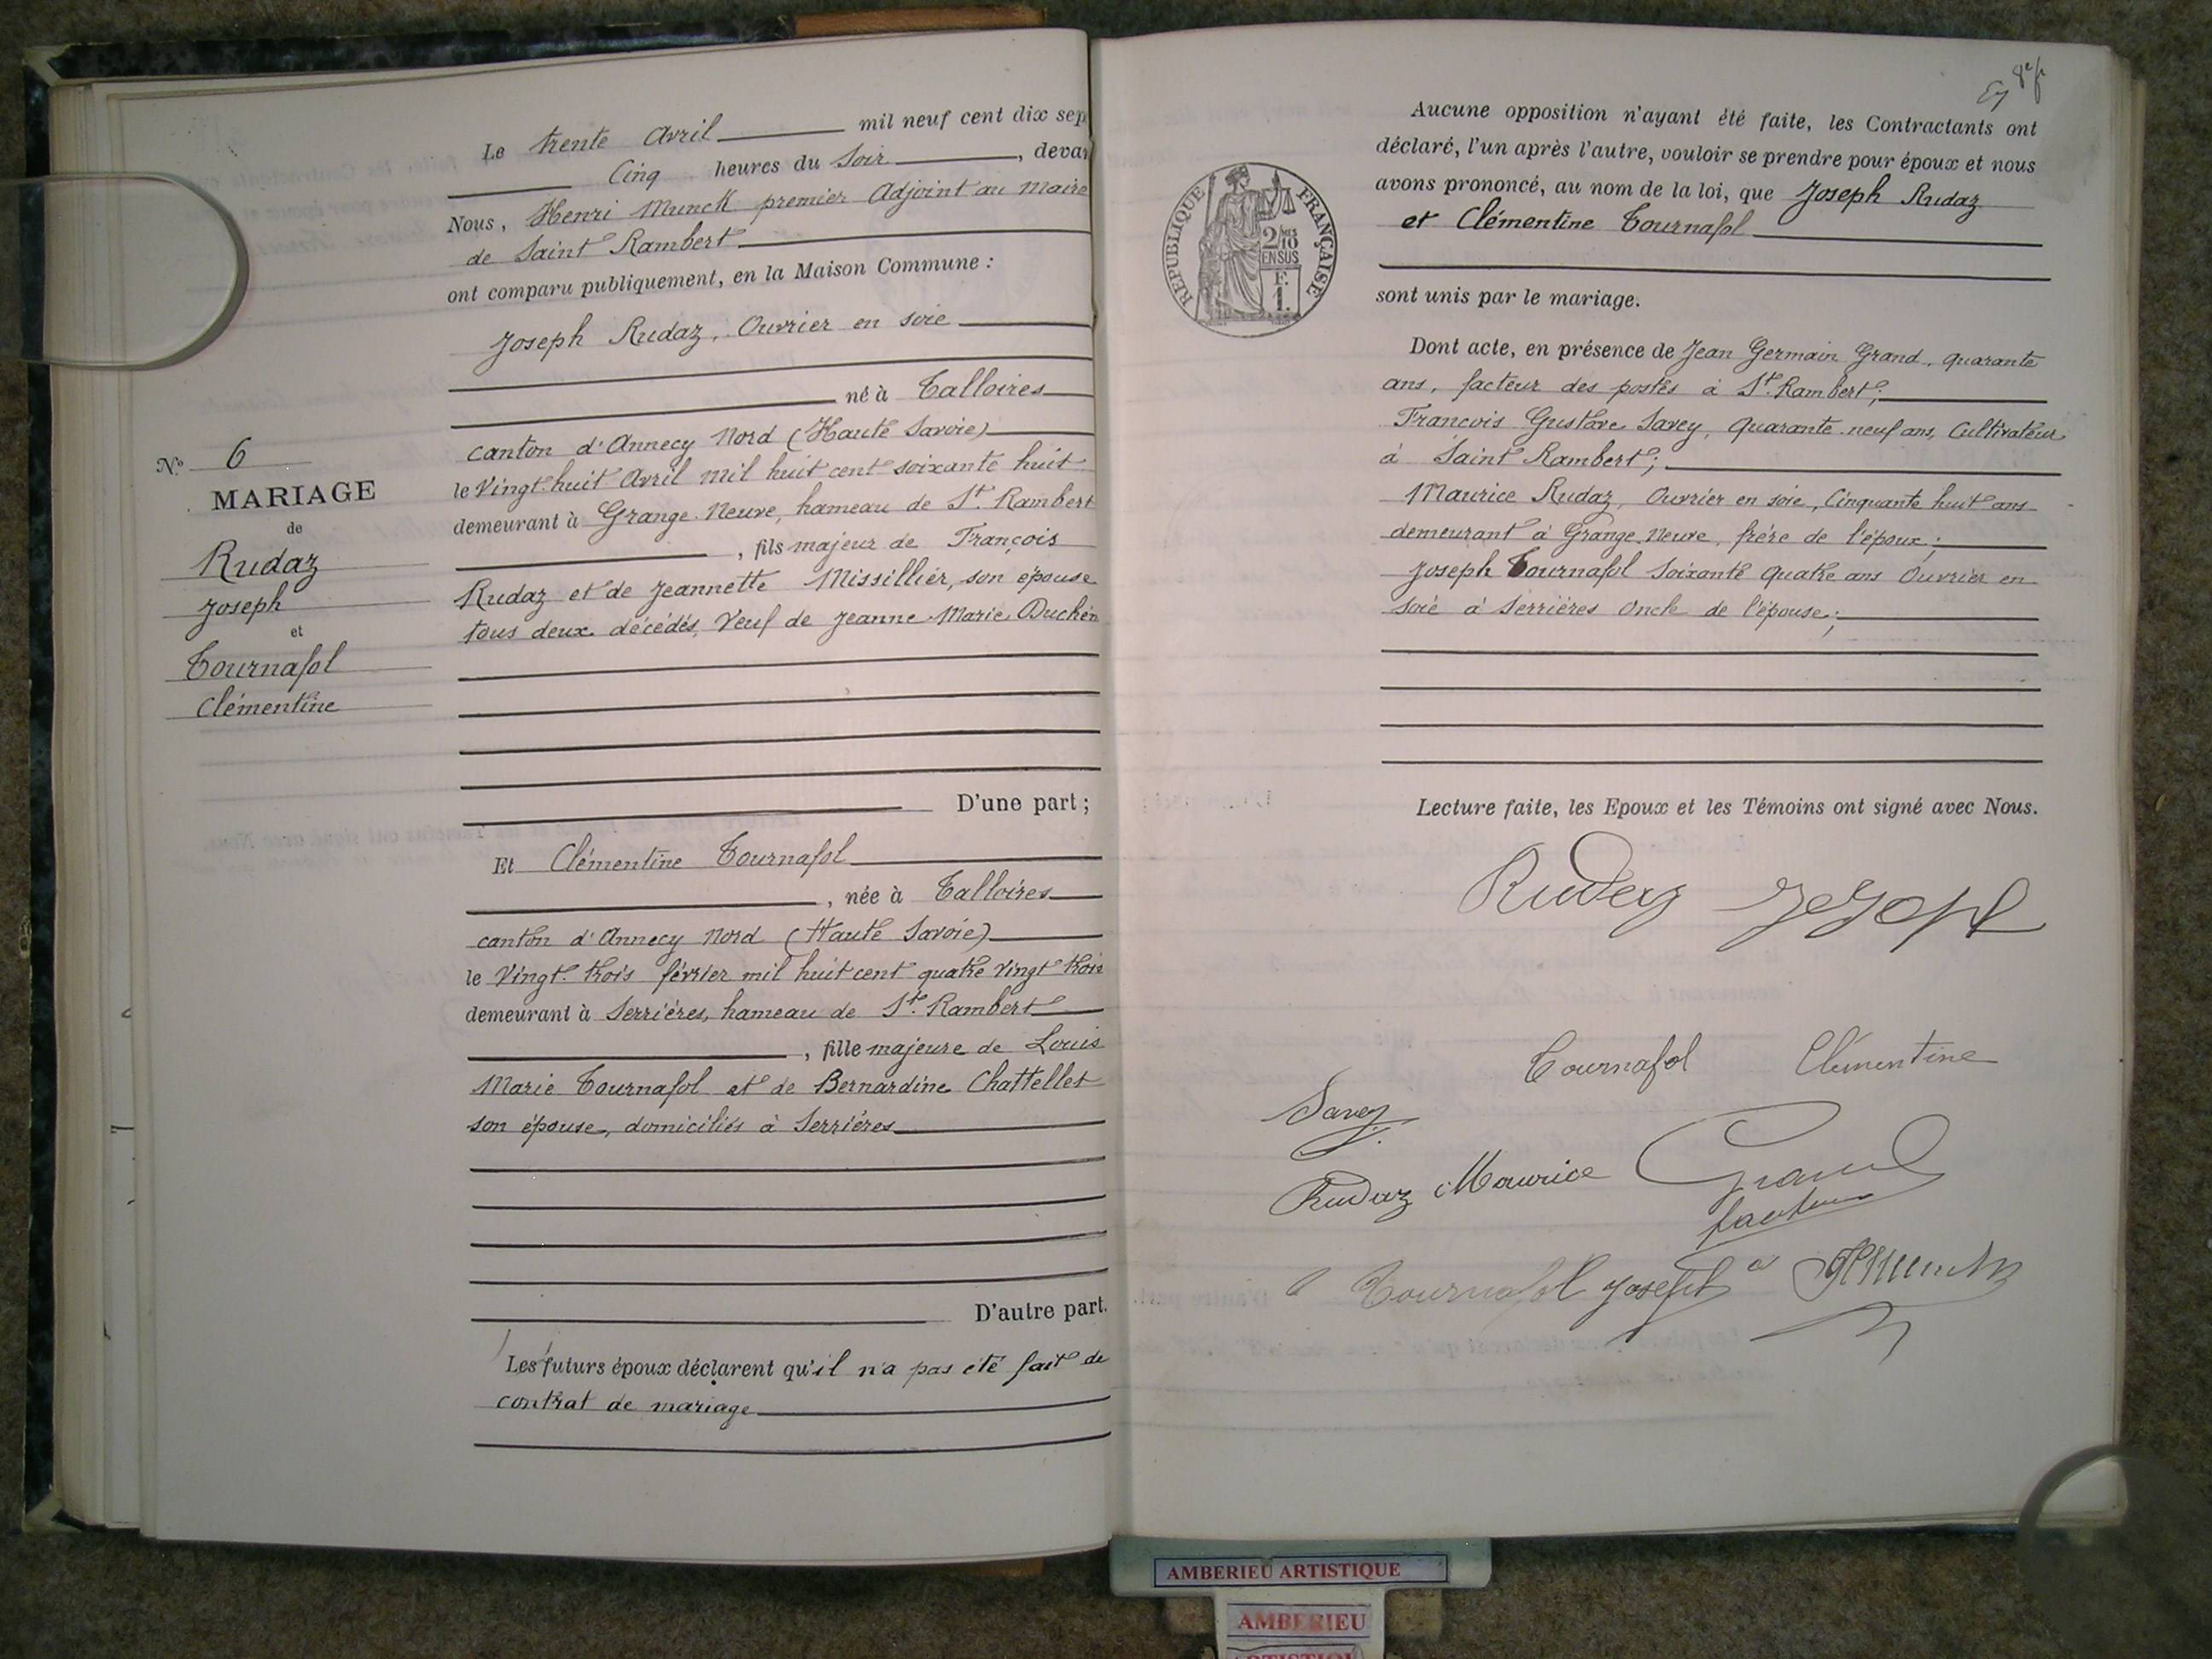 Le trente Avril mil neuf cent dix sep
Cinq heures du Soir, devan
Nous, Henri Munck premier Adjoint au Maire
de Saint Rambert
ont comparu publiquement, en la Maison Commune :
Joseph Rudaz, Ouvrier en soie
né à Talloires
canton d'Annecy Nord (Haute Savoie)
le Vingt-huit Avril mil huit cent soixante huit
demeurant à Grange-Neuve, hameau de St. Rambert
, fils majeur de François
Rudaz et de Jeannette Missillier, son épouse
tous deux décédés, Veuf de Jeanne-Marie Duchên
N° 6
MARIAGE
de
Rudaz
Joseph
et
Tournafol
Clémentine
D'une part ;
Et Clémentine Tournafol
, née à Talloires
canton d'Annecy Nord (Haute Savoie)
le Vingt-trois février mil huit cent quatre vingt trois
demeurant à Serrières, hameau de St. Rambert
, fille majeure de Louis
Marie Tournafol et de Bernardine Chattellet
son épouse, domiciliés à Serrières
D'autre part.
Les futurs époux déclarent qu'il n'a pas été fait de
contrat de mariage
8e f
Aucune opposition n'ayant été faite, les Contractants ont
déclaré, l'un après l'autre, vouloir se prendre pour époux et nous
avons prononcé, au nom de la loi, que Joseph Rudaz
et Clémentine Tournafol
REPUBLIQUE FRANÇAISE
2/10
EN SUS
F.
1.
sont unis par le mariage.
Dont acte, en présence de Jean Germain Grand, quarante
ans, facteur des postes à St. Rambert ;
François Gustave Savey, Quarante-neuf ans, Cultivateur
à Saint Rambert ;
Maurice Rudaz, Ouvrier en soie, Cinquante huit ans
demeurant à Grange-Neuve, frère de l'époux ;
Joseph Tournafol Soixante Quatre ans Ouvrier en
soie à Serrières Oncle de l'épouse ;
Lecture faite, les Epoux et les Témoins ont signé avec Nous.
Rudaz Joseph
Tournafol Clémentine
Savey
Rudaz Maurice Grand
facteur
Tournafol Joseph HMunck
AMBERIEU ARTISTIQUE
AMBERIEU
ARTISTIQU